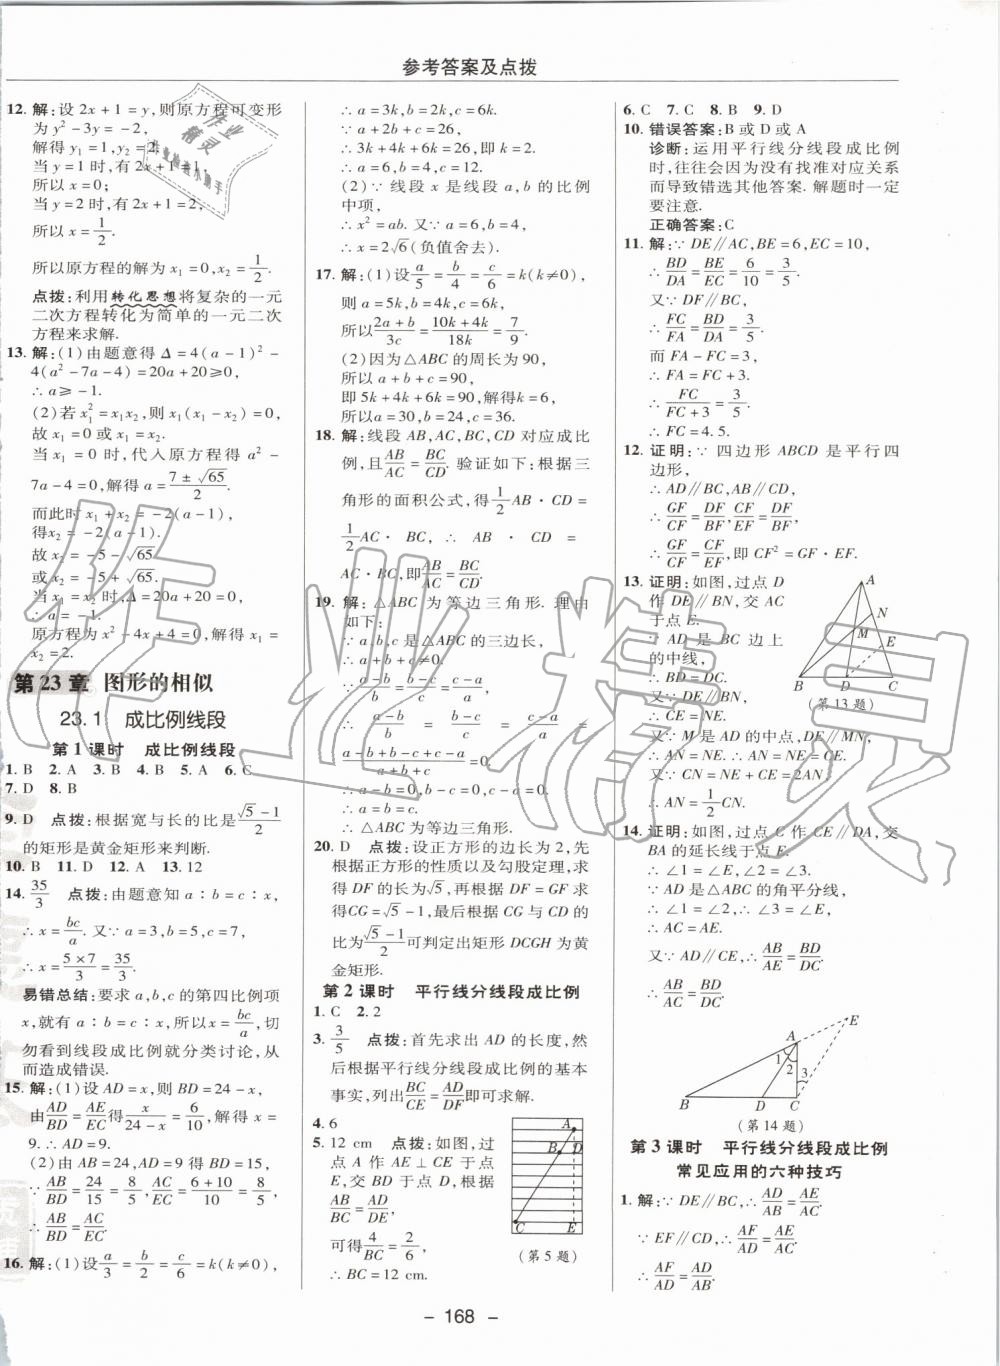 参考答案及点拨
12. 解:设 2x+1=y,则原方程可变形
为 y²-3y=-2,
解得 y₁=1,y₂=2.
当 y=1 时,有 2x+1=1,
所以 x=0;
当 y=2 时,有 2x+1=2,
所以 x=1/2.
所以原方程的解为 x₁=0,x₂=1/2.
点拨:利用转化思想将复杂的一元
二次方程转化为简单的一元二次
方程来求解.
13. 解:(1)由题意得 Δ=4(a-1)²-
4(a²-7a-4)=20a+20≥0,
∴a≥-1.
(2)若 x₁²=x₁x₂,则 x₁(x₁-x₂)=0,
故 x₁=0 或 x₁=x₂.
当 x₁=0 时,代入原方程得 a²-
7a-4=0,解得 a=(7±√65)/2.
而此时 x₁+x₂=-2(a-1),
得x₂=-2(a-1).
故 x₂=-5-√65
或 x₂=-5+√65.
当 x₁=x₂ 时,Δ=20a+20=0,
∴a=-1.
原方程为 x²-4x+4=0,解得 x₁=
x₂=2.
第 23 章 图形的相似
23.1 成比例线段
第 1 课时 成比例线段
1. B 2. A 3. B 4. B 5. A 6. C
7. D 8. B
9. D 点拨:根据宽与长的比是(√5-1)/2
的矩形是黄金矩形来判断.
10. B 11. D 12. A 13. 12
14. 35/3 点拨:由题意知 a∶b=c∶x,
∴x=bc/a. 又∵a=3,b=5,c=7,
∴x=(5×7)/3=35/3.
易错总结:要求 a,b,c 的第四比例项
x,就有 a∶b=c∶x,所以x=bc/a,切
勿看到线段成比例就分类讨论,从
而造成错误.
15. 解:(1)设 AD=x,则 BD=24-x,
由AD/BD=AE/EC得x/(24-x)=6/10,解得 x=
9. ∴AD=9.
(2)由 AB=24,AD=9 得 BD=15,
∵AB/BD=24/15=8/5,AC/EC=(6+10)/10=8/5,
∴AB/BD=AC/EC.
16. 解:(1)设a/3=b/2=c/6=k(k≠0),
∴a=3k,b=2k,c=6k.
∵a+2b+c=26,
∴3k+4k+6k=26,即 k=2.
(2)∵线段 x 是线段 a,b 的比例
中项,
∴x²=ab. 又∵a=6,b=4,
∴x=2√6(负值舍去).
17. 解:(1)设a/5=b/4=c/6=k(k≠0),
则 a=5k,b=4k,c=6k,
所以(2a+b)/3c=(10k+4k)/18k=7/9.
(2)因为△ABC 的周长为 90,
所以 a+b+c=90,
即 5k+4k+6k=90,解得k=6,
所以a=30,b=24,c=36.
18. 解:线段 AB,AC,BC,CD 对应成比
例,且AB/AC=BC/CD. 验证如下:根据三
角形的面积公式,得1/2AB·CD=
1/2AC·BC,∴AB·CD=
AC·BC,即AB/AC=BC/CD.
19. 解:△ABC 为等边三角形. 理由
如下:
∵a,b,c 是△ABC 的三边长,
∴a+b+c≠0.
∵(a-b)/c=(b-c)/a=(c-a)/b,
∴(a-b)/c=(b-c)/a=(c-a)/b=
(a-b+b-c+c-a)/(a+b+c)=0.
∴a-b=0,b-c=0,c-a=0.
∴a=b=c.
∴△ABC为等边三角形.
20. D 点拨:设正方形的边长为2,先
根据正方形的性质以及勾股定理,求
得 DF 的长为√5,再根据 DF=GF 求
得CG=√5-1,最后根据 CG 与 CD 的
比为(√5-1)/2可判定出矩形 DCGH 为黄
金矩形.
第 2 课时 平行线分线段成比例
1. C 2. 2
3. 3/5 点拨:首先求出 AD 的长度,然
后根据平行线分线段成比例的基本
事实,列出BC/CE=AD/DF即可求解.
4. 6
5. 12 cm 点拨:如图,过
点 A 作 AE⊥CE 于点
E,交 BD 于点 D,
∵BD∥CE,∴AB/BC=AD/DE,
可得4/BC=2/6,
∴BC=12 cm.
A
B D
C E
(第 5 题)
6. C 7. C 8. B 9. D
10. 错误答案:B 或 D 或 A
诊断:运用平行线分线段成比例
时,往往会因为没有找准对应关系
而导致错选其他答案. 解题时一定
要注意.
正确答案:C
11. 解:∵DE∥AC,BE=6,EC=10,
∴BD/DA=BE/EC=6/10=3/5.
又∵DF∥BC,
∴FC/FA=BD/DA=3/5.
而 FA-FC=3,
∴FA=FC+3,
∴FC/(FC+3)=3/5.
∴FC=4.5.
12. 证明:∵四边形 ABCD 是平行四
边形,
∴AD∥BC,AB∥CD.
∴GF/CF=DF/BF,CF/EF=DF/BF.
∴GF/CF=CF/EF,即 CF²=GF·EF.
13. 证明:如图,过点 D
作 DE∥BN,交 AC
于点 E.
∵AD 是 BC 边上
的中线,
∴BD=DC.
又∵DE∥BN,
∴CE=NE.
又∵M 是 AD 的中点,DE∥MN,
∴AN=NE. ∴AN=NE=CE.
又∵CN=NE+CE=2AN,
∴AN=1/2CN.
A
N
M E
B D C
(第 13 题)
14. 证明:如图,过点 C 作 CE∥DA,交
BA的延长线于点 E.
∴∠1=∠E,∠2=∠3.
∵AD 是△ABC 的角平分线,
∴∠1=∠2,∴∠3=∠E,
∴AC=AE.
又∵AD∥CE,∴AB/AE=BD/DC.
∴AB/AC=BD/DC.
E
A
1 2
3
B D C
(第 14 题)
第 3 课时 平行线分线段成比例
常见应用的六种技巧
1. 解:∵DE∥BC,∴AD/AB=AE/AC.
∵EF∥CD,∴AF/AD=AE/AC.
∴AF/AD=AD/AB.
- 168 -
作业精灵
作业
精灵